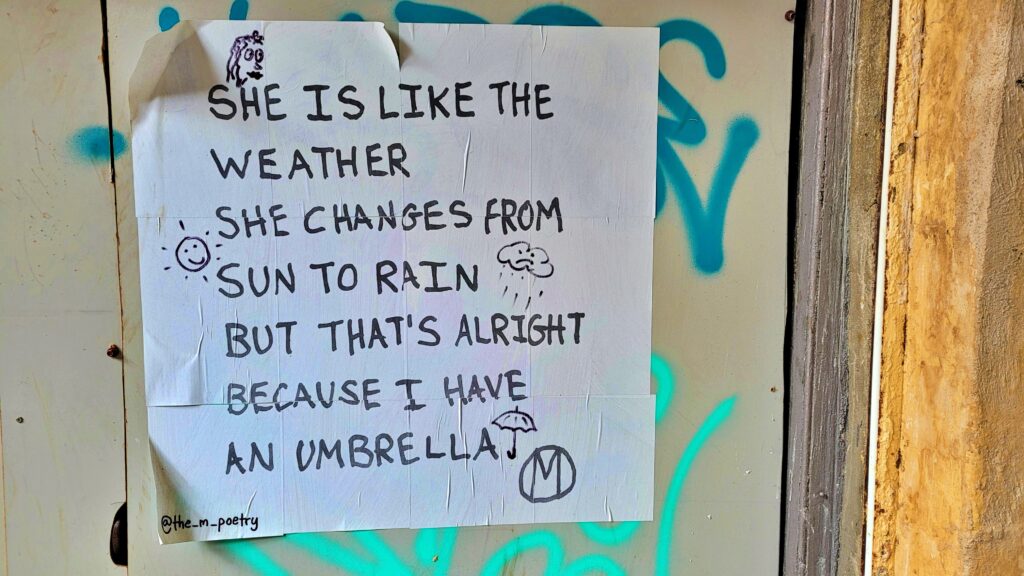 SHE IS LIKE THE
WEATHER
SHE CHANGES FROM
SUN TO RAIN
BUT THAT'S ALRIGHT
BECAUSE I HAVE
AN UMBRELLA
M
@the_m_poetry